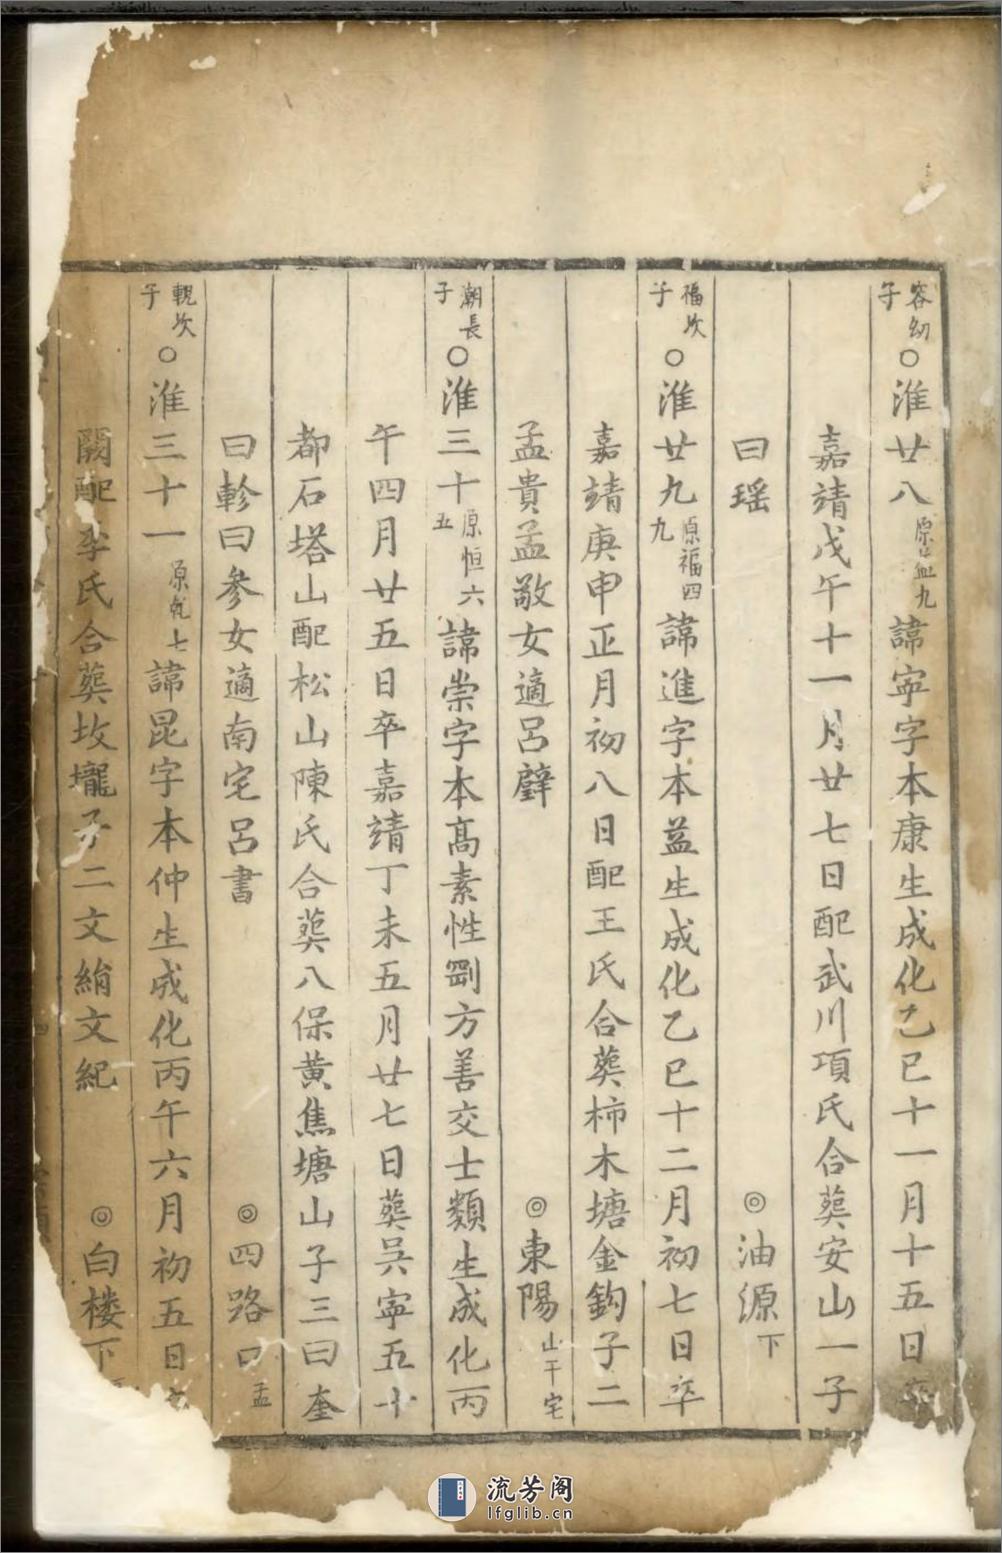 容幼子○淮廿八原□九諱寧字本康生成化乙巳十一月十五日
嘉靖戊午十一月廿七日配武川項氏合葬安山一子
曰瑶 ◎油源下
福次子○淮廿九原福四九諱進字本益生成化乙巳十二月初七日卒
嘉靖庚申正月初八日配王氏合葬柿木塘金鈎子二
孟貴孟敬女適呂璧 ◎東陽山干宅
潮長子○淮三十原恒六五諱崇字本高素性剛方善交士類生成化丙
午四月廿五日卒嘉靖丁未五月廿七日葬吳寧五十
都石塔山配松山陳氏合葬八保黄焦塘山子三曰奎
曰軫曰參女適南宅呂書 ◎四路口孟
親次子○淮三十一原乾七諱昆字本仲生成化丙午六月初五日
闕配李氏合葬坟壠子二文絹文紀 ◎白楼下
流芳阁
lfglib.cn